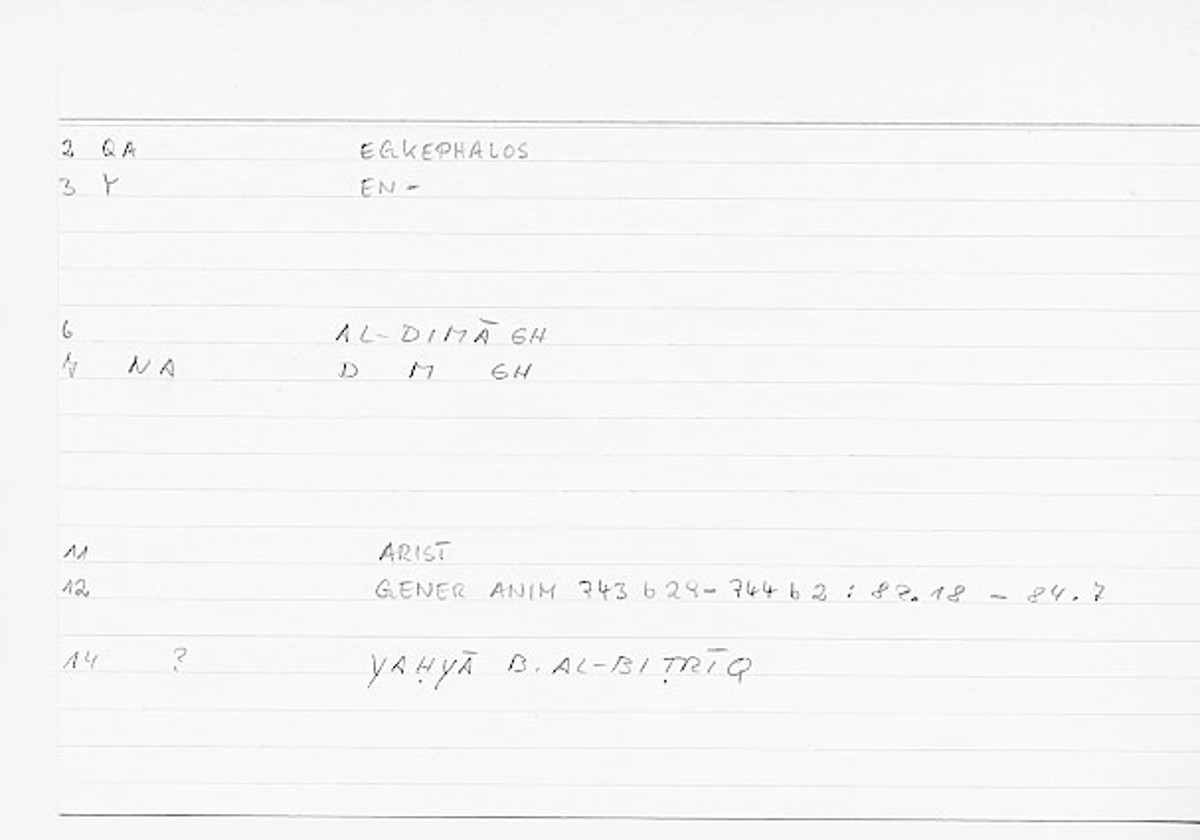 2 QA EGKEPHALOS
3 Y EN-
6 AL-DIMĀGH
7 NA D M GH
11 ARIST
12 GENER ANIM 743 b 29-744 b 2 : 82.18 - 84.7
14 ? YAḤYĀ B. AL-BIṬRĪQ